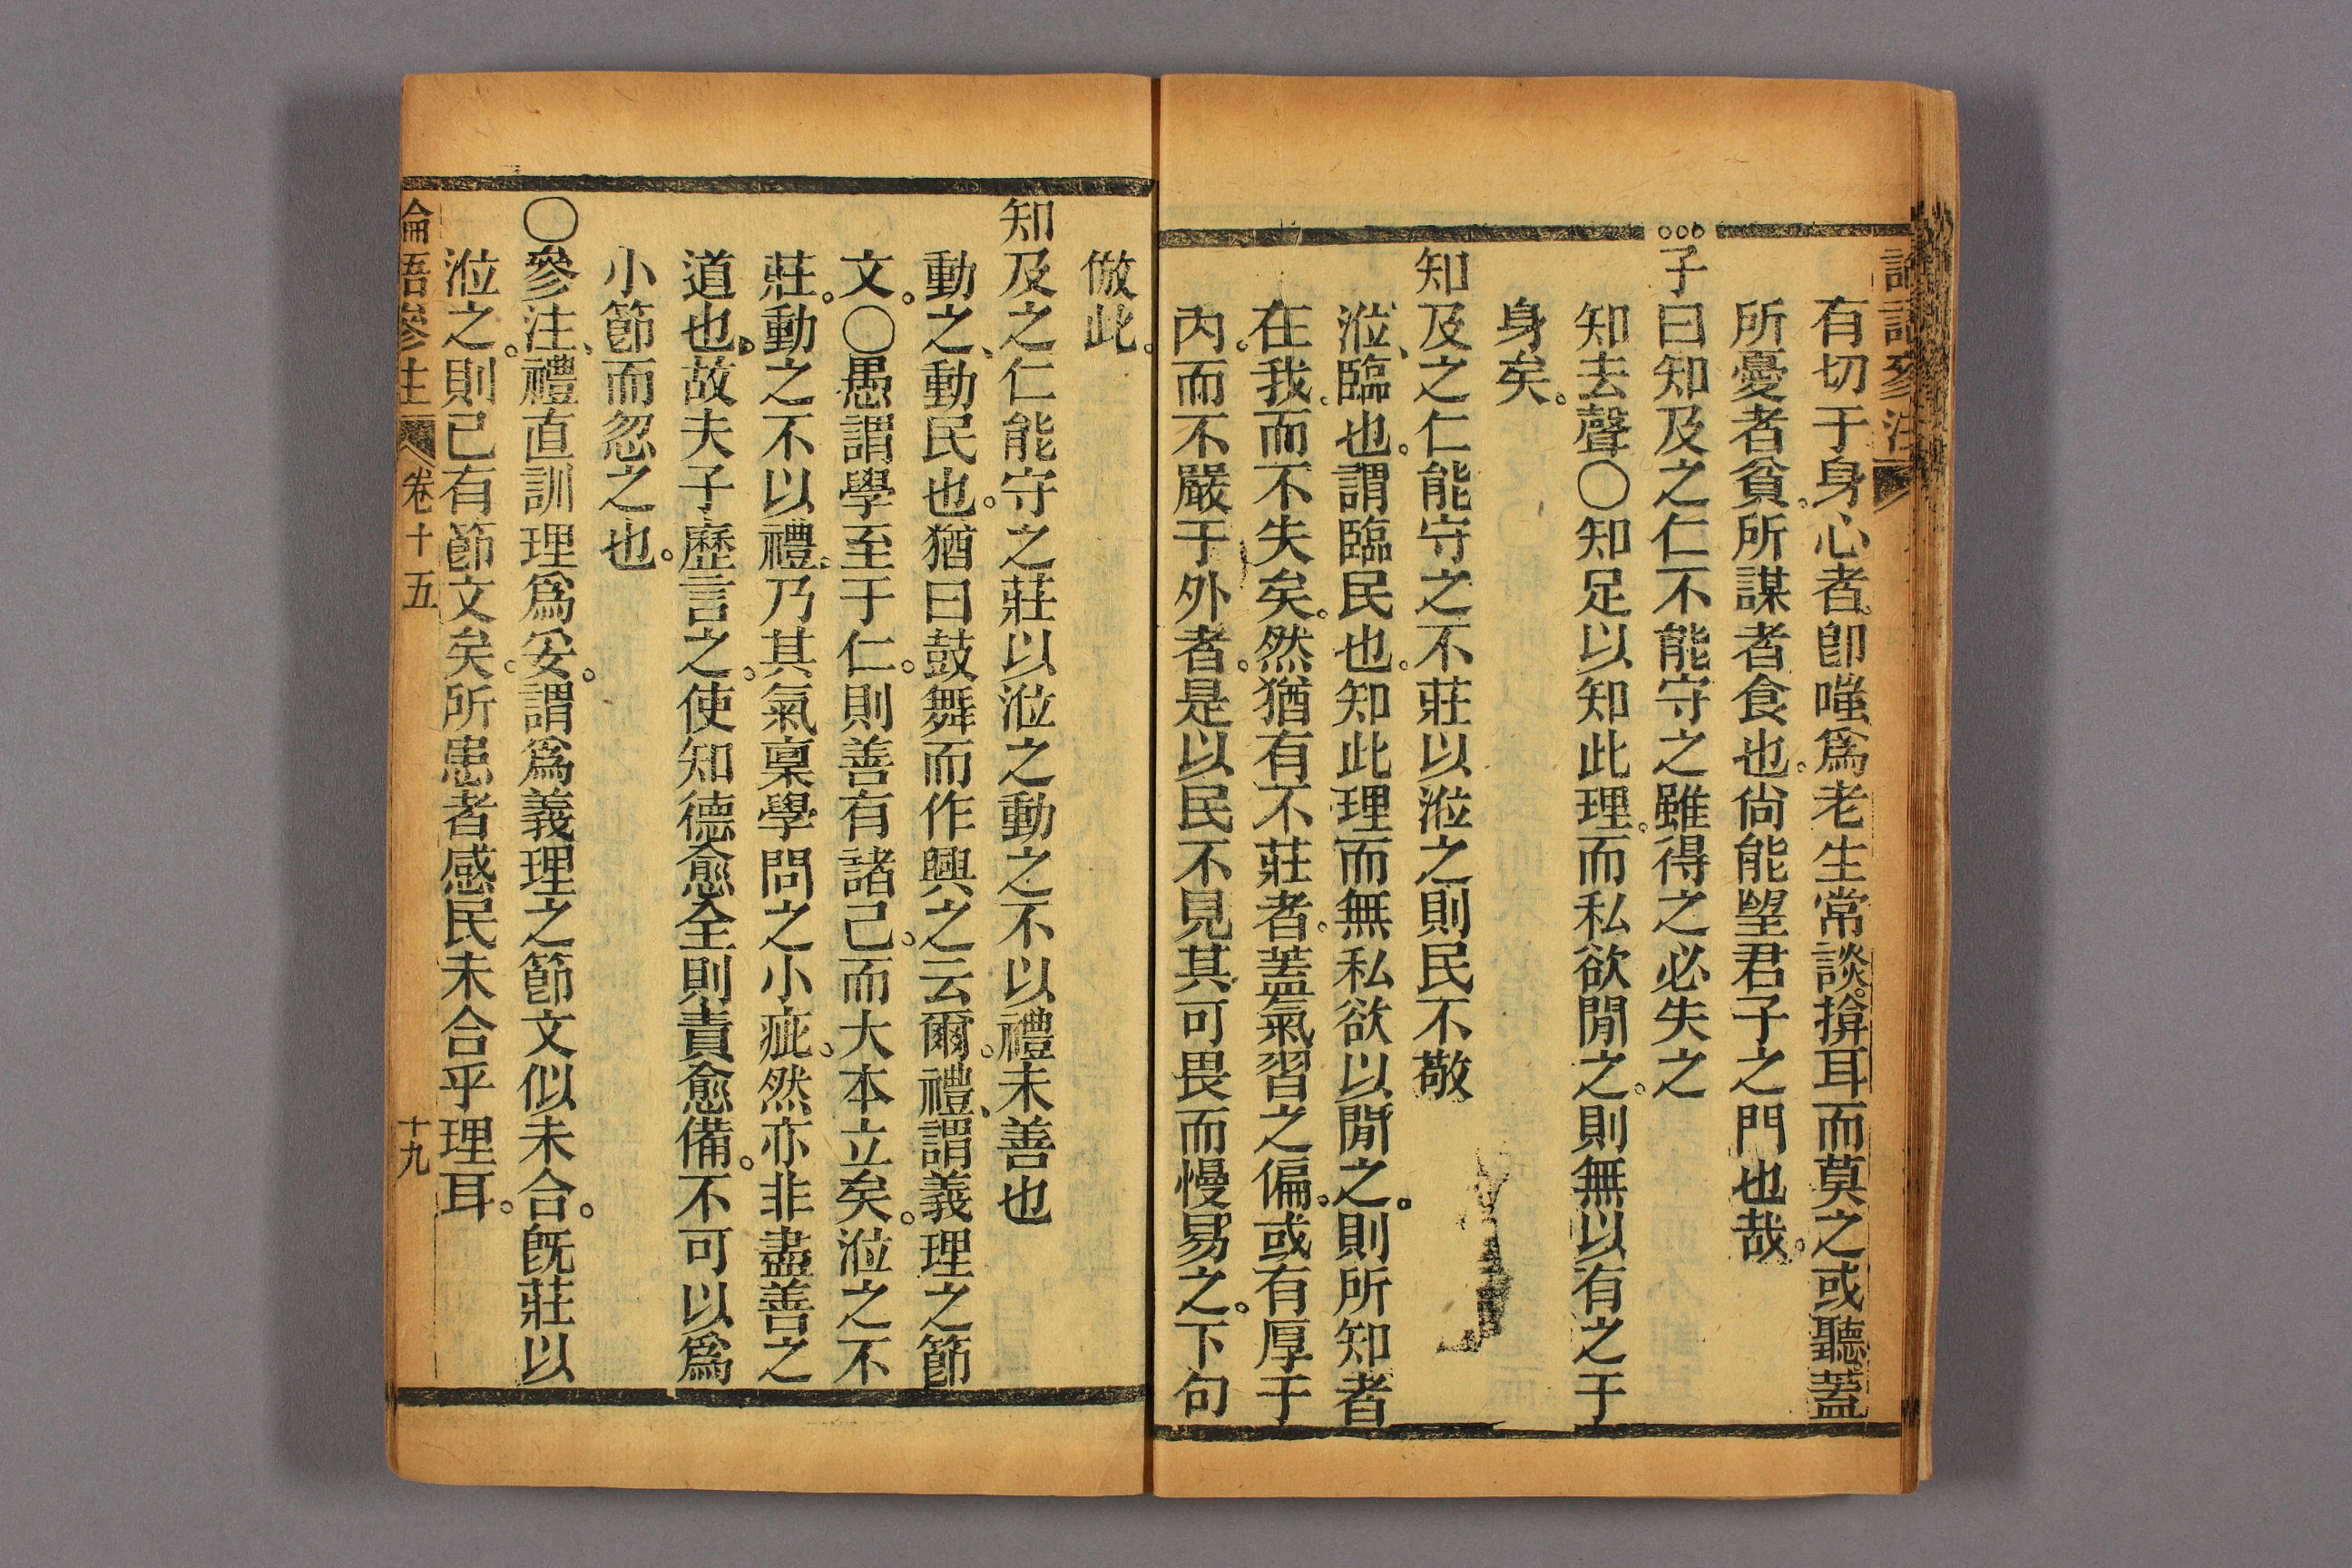 論語參注
有切于身心者。卽嗤爲老生常談。揜耳而莫之或聽。蓋
所憂者貧。所謀者食也。尙能望君子之門也哉。
子曰知及之仁不能守之雖得之必失之
知去聲〇知足以知此理。而私欲閒之。則無以有之于
身矣。
知及之仁能守之不莊以涖之則民不敬
涖、臨也。謂臨民也。知此理而無私欲以閒之。則所知者
在我。而不失矣。然猶有不莊者。蓋氣習之偏。或有厚于
內。而不嚴于外者。是以民不見其可畏而慢易之。下句
倣此。
知及之仁能守之莊以涖之動之不以禮未善也
動之、動民也。猶曰鼓舞而作興之云爾。禮、謂義理之節
文。〇愚謂學至于仁。則善有諸己。而大本立矣。涖之不
莊。動之不以禮。乃其氣稟學問之小疵。然亦非盡善之
道也。故夫子歷言之。使知德愈全則責愈備。不可以爲
小節而忽之也。
〇參注、禮直訓理爲妥。謂爲義理之節文似未合。旣莊以
涖之。則已有節文矣。所患者感民未合乎理耳。
論語參注 卷十五 十九